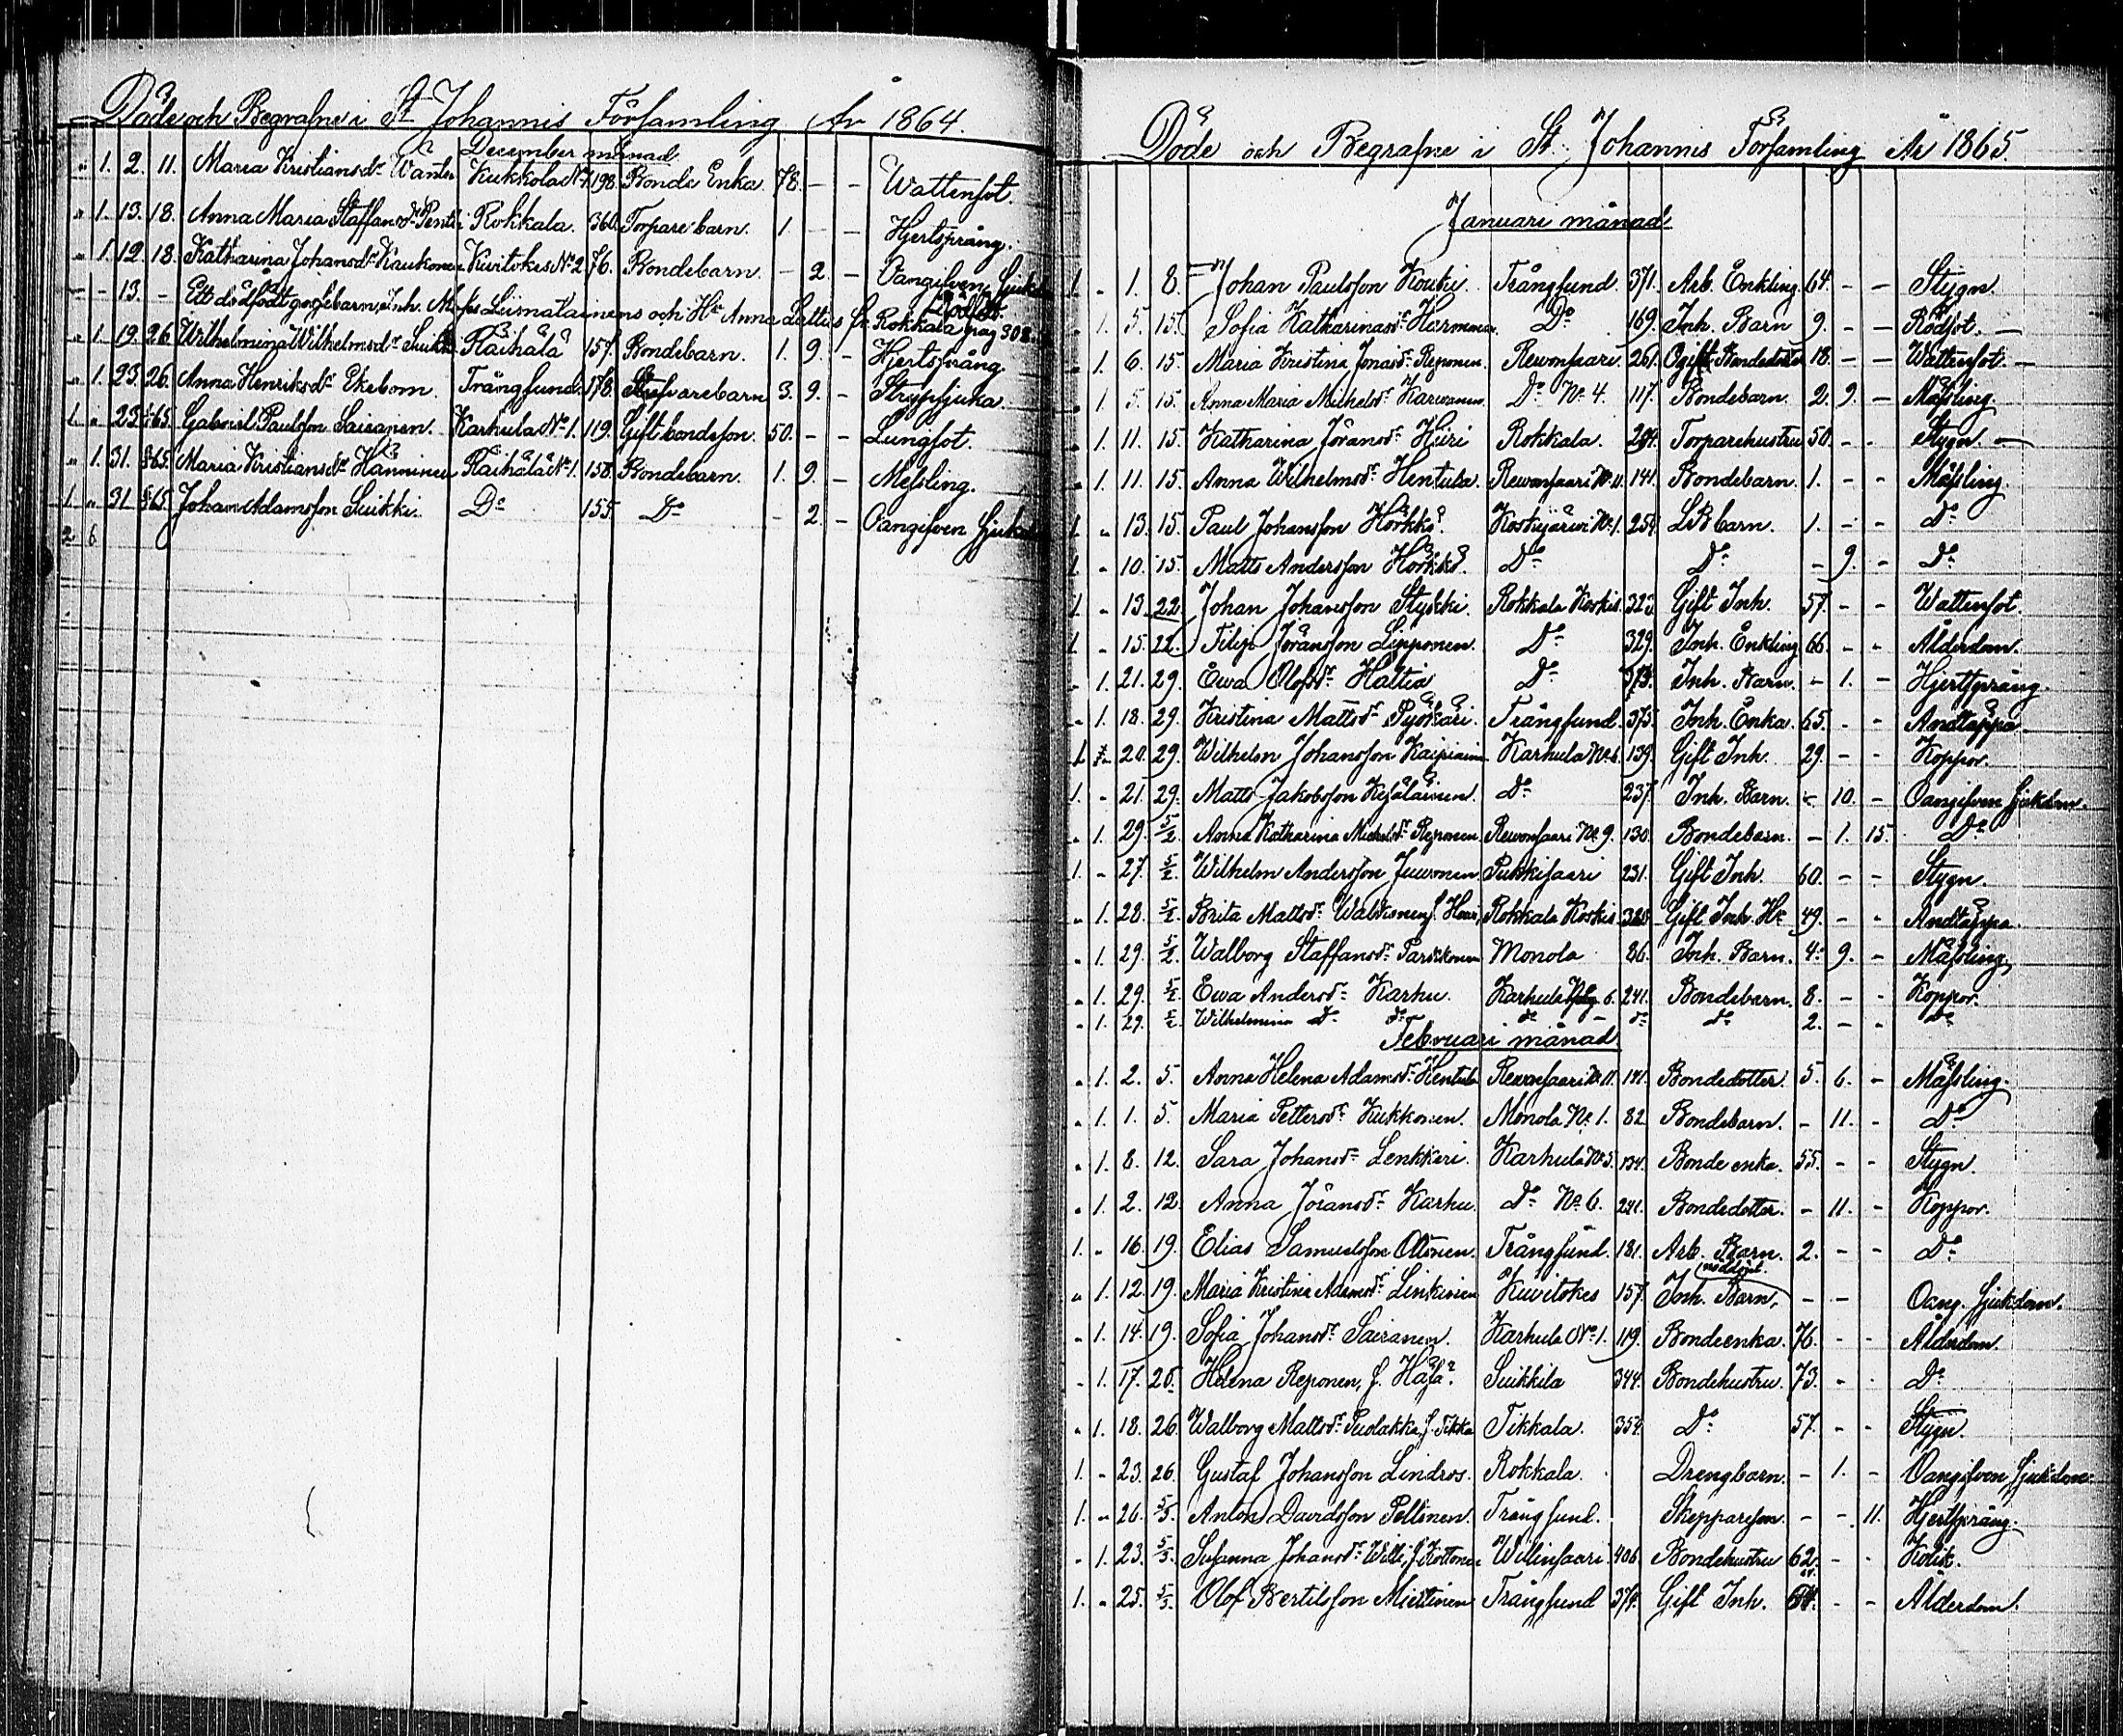 Döde och Begrafne i St Johannis Församling År 1864.
December månad
" 1. 2. 11. Maria Kristiansdr Wänter Kukkola No 1. 198. Bonde Enka. 78. - - Wattensot.
" 1. 13. 18. Anna Maria Staffansdr Pentti Rokkala. 360. Torpare barn. 1. - - Hjertsprång.
" 1. 12. 18. Katharina Johansdr Kaukonen Kuitokes No 2. 76. Bondebarn. - 2. - Oangifven Sjukd
- - 13. - Ett dödfödt gossebarn, Inh. Liimatainens och Hu Anna fr Rokkala pag 302.
" 1. 19. 26. Wilhelmina Wilhelmsdr Suikki Räihälä 157. Bondebarn. 1. 9. - Hjertsprång.
" 1. 23. 26. Anna Henriksdr Ekebom. Trångsund. 178. barn 3. 9. - Strypsjuka.
1. " 23. 65. Gabriel Paulsson Sairanen. Karhula No 1. 119. Gift bondeson. 50. - - Lungsot.
" 1. 31. 65. Maria Kristiansdr Hänninen Räihälä No 1. 158. Bondebarn. 1. 9. - Messling.
1. " 31. 65. Johan Adamsson Suikki. Do 155. Do - 2. - Oangifven Sjukd
2 6
Döde och Begrafne i St. Johannis Församling År 1865.
Januari månad
1. - 1. 8. Johan Paulsson Kouki. Trångsund. 371. Arb. Enkling. 64. - - Stygn.
" 1. 5. 15. Sofia Katharinasdr Harmanen. Do 169. Inh. Barn 9. - - Rödsot. -
" 1. 6. 15. Maria Kristina Jonasdr Reponen. Rewonsaari. 261. Ogift Bondedotter 18. - - Wattensot. -
" 1. 5. 15. Anna Maria Michelsdr Karwanen Do No 4. 117. Bondebarn. 2. 9. - Mässling.
" 1. 11. 15. Katharina Göransdr Hiiri Rokkala. 284. Torparehustru 50. - - Stygn. -
" 1. 11. 15. Anna Wilhelmsdr Hentula. Rewonsaari No 11. 141. Bondebarn. 1. - - Mässling.
1. " 13. 15. Paul Johansson Hörkkö. Koskijärwi No 1. 254. LB barn. 1. - - Do
1. - 10. 15. Matts Andersson Hörkkö. Do Do - 9. - Do
1. - 13. 22. Johan Johansson Styrkki. Rokkala Koskis. 323. Gift Inh. 57. - - Wattensot.
1. - 15. 22. Filip Göransson Lipponen. Do 329. Inh. Enkling 66. - - Ålderdom.
- 1. 21. 29. Ewa Olofsdr Haltia Do 373. Inh. Barn. - 1. - Hjertsprång.
" 1. 18. 29. Kristina Mattsdr Pyökäri. Trångsund. 375. Inh. Enka. 65. - - Andtäppa.
1. - 20. 29. Wilhelm Johansson Kaipiainen Karhula No 6. 139. Gift Inh. 29. - - Koppor.
1. - 21. 29. Matts Jakobsson Kesälainen. Do 237. Inh. Barn. - 10. - Oangifven Sjukdom.
" 1. 29. 5/2. Anna Katharina Michelsdr Reponen Rewonsaari No 9. 130. Bondebarn. - 1. 15. Do
1. - 27. 5/2. Wilhelm Andersson Juwonen Pukkisaari 231. Gift Inh. 60. - - Stygn.
" 1. 28. 5/2. Brita Mattsdr Walkisnen, f. Rokkala Koskis 328. Gift Inh. Hu 49. - - Andtäppa.
" 1. 29. 5/2. Walborg Staffansdr Parkkonen Monola 86. Inh. Barn. 4. 9. - Mässling.
" 1. 29. 5/2. Ewa Andersdr Karhu. Karhula 6. 241. Bondebarn. 8. - - Koppor.
" 1. 29. 5/2. Wilhelmina do do do do do 2. - - Do
Februari månad
" 1. 2. 5. Anna Helena Adamsdr Hentula Rewonsaari No 11. 141. Bondedotter. 5. 6. - Mässling.
" 1. 1. 5. Maria Pettersdr Kukkonen. Monola No 1. 82. Bondebarn. - 11. - Do
" 1. 8. 12. Sara Johansdr Lenkkeri. Karhula No 5. 134. Bonde enka. 55. - - Stygn.
" 1. 2. 12. Anna Göransdr Karhu. Do No 6. 241. Bondedotter. - 11. - Koppor.
1. - 16. 19. Elias Samuelsson Ottonen. Trångsund. 181. Arb. Barn. 2. - - Do
" 1. 12. 19. Maria Kristina Adamsdr Linkinen Kuitokes 157. Inh. Barn, nöddöpt. - - Oang. Sjukdom.
" 1. 14. 19. Sofia Johansdr Sairanen. Karhula No 1. 119. Bondeenka. 76. - - Ålderdom.
- 1. 17. 26. Helena Reponen, f. Häsä. Suikkila 344. Bondehustru. 73. - - Do
" 1. 18. 26. Walborg Mattsdr Puolakka, f. Tikka Tikkala. 354. Do 57. - - Stygn.
1. - 23. 26. Gustaf Johansson Lindros. Rokkala. Drengbarn. - 1. - Oangifven Sjukdom.
1. - 26. 5/3. Anton Davidsson Pellinen. Trångsund. Skeppareson. - - 11. Hjertsprång.
- 1. 23. 5/3. Susanna Johansdr Willi, f. Kottonen Wilinsaari. 406. Bondehustru 62. - - Kolik.
1. - 25. 5/3. Olof Bertilsson Miettinen Trångsund 374. Gift Inh. - - Ålderdom.